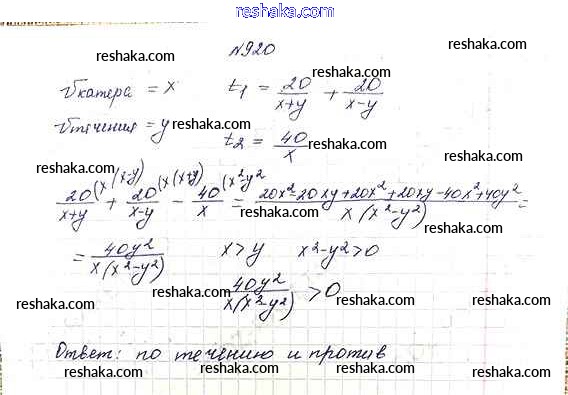 reshaka.com
№920
reshaka.com reshaka.com
vкатера = x t₁ = 20/(x+y) + 20/(x-y)
reshaka.com
vтечения = y reshaka.com t₂ = 40/x reshaka.com
reshaka.com
20/(x+y) (x(x-y) + 20/(x-y) (x(x+y) - 40/x (x²-y² = (20x²-20xy+20x²+20xy-40x²+40y²)/(x(x²-y²)) =
reshaka.com reshaka.com
= 40y²/(x(x²-y²)) x>y x²-y²>0
reshaka.com
40y²/(x(x²-y²)) >0
reshaka.com reshaka.com reshaka.com
reshaka.com reshaka.com
Ответ: по течению и против
reshaka.com reshaka.com reshaka.com